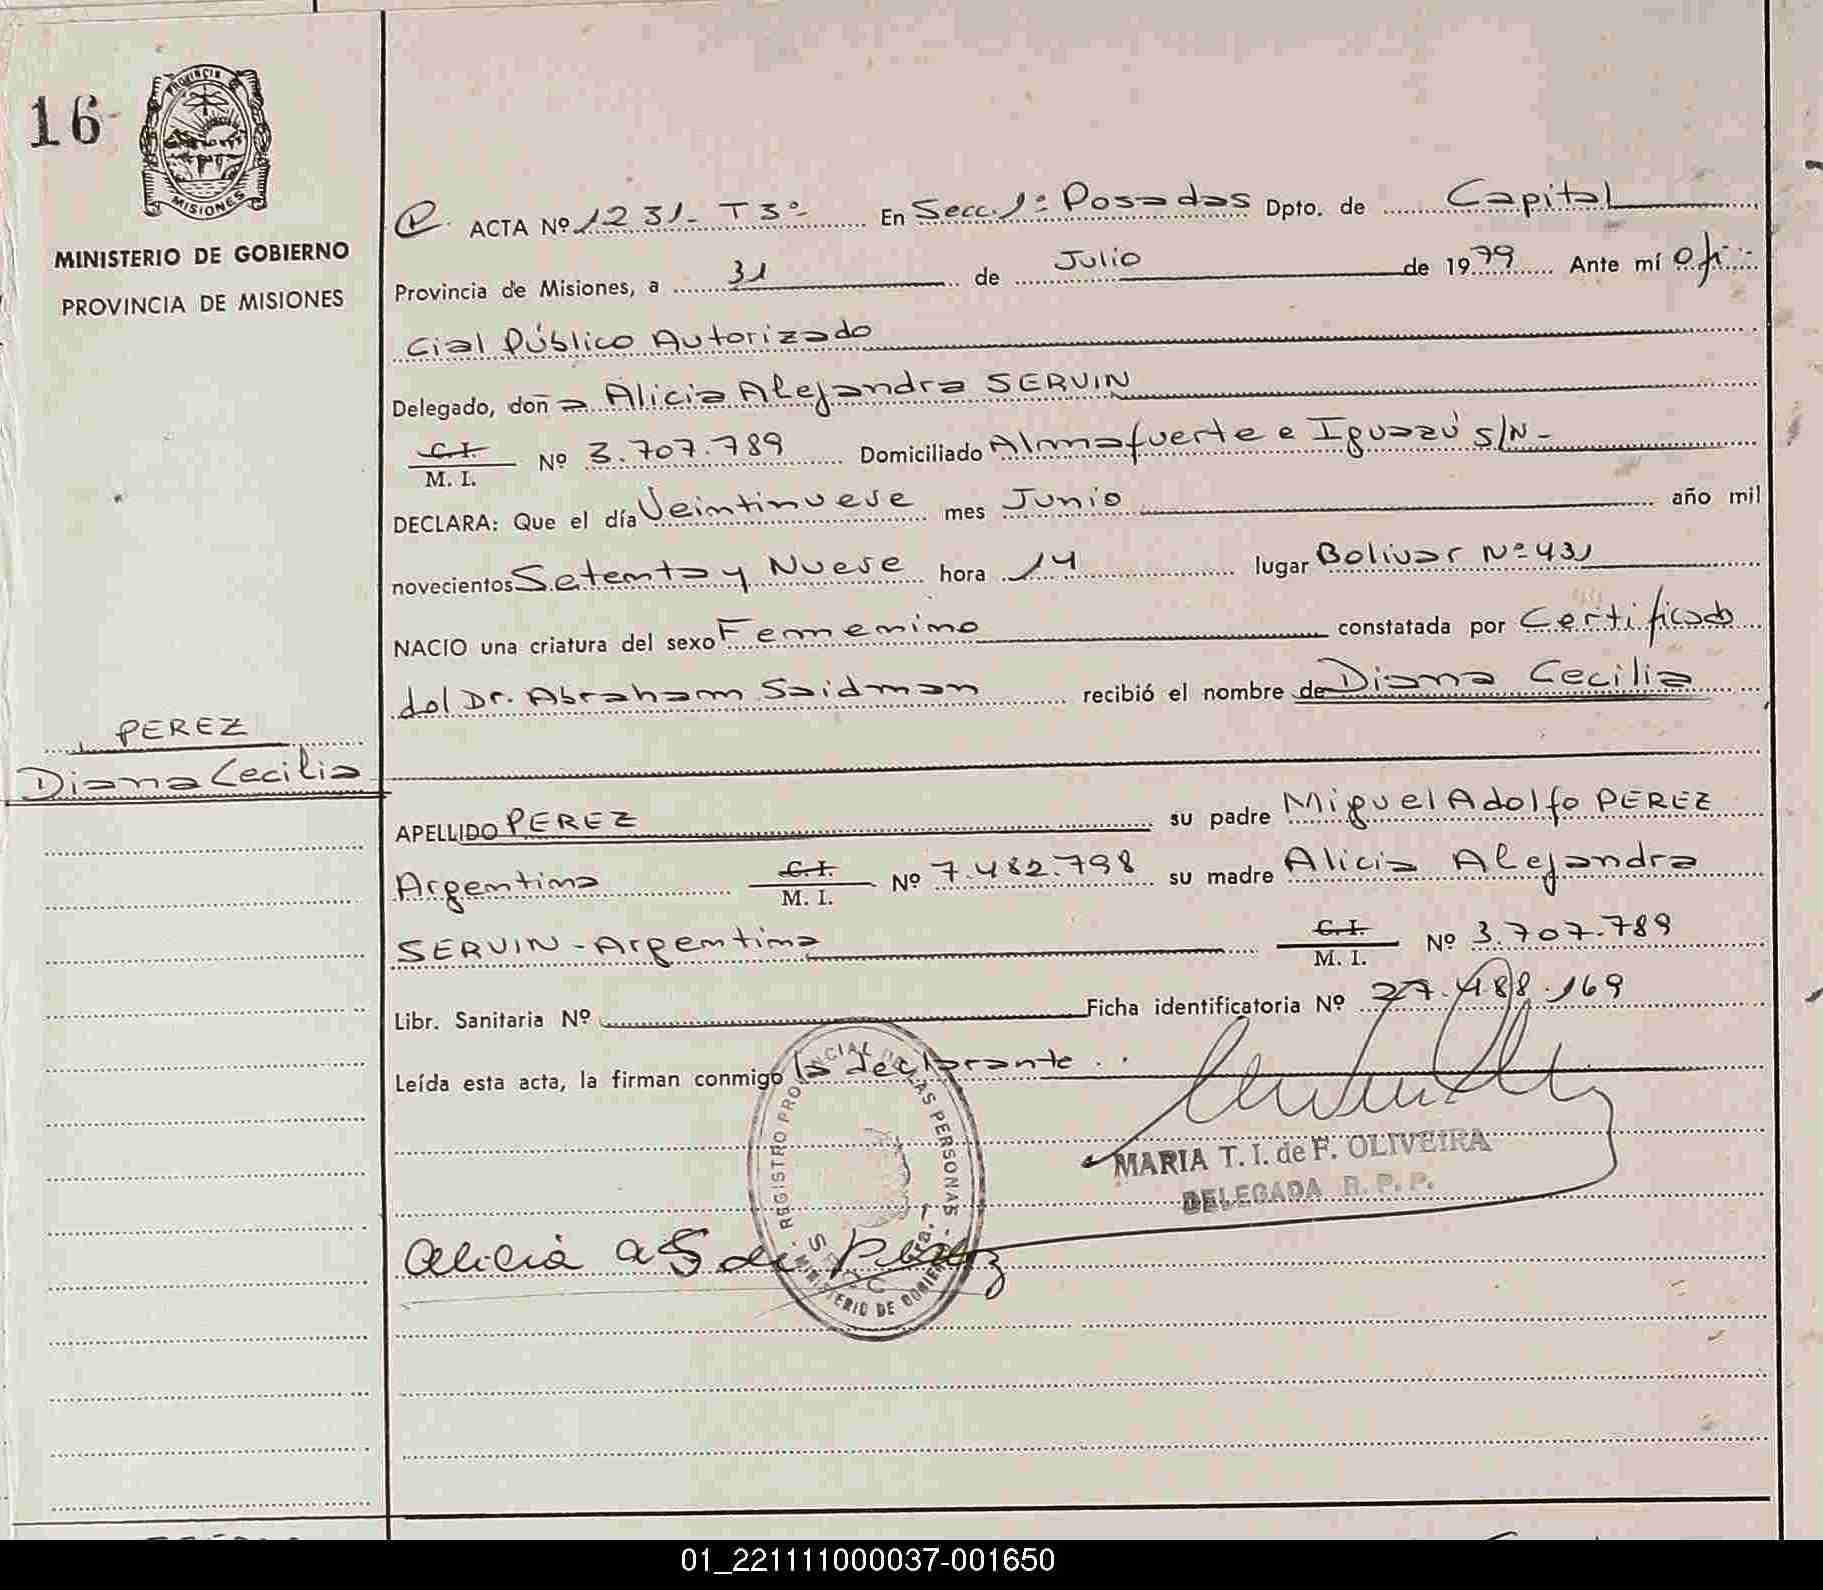 16
PROVINCIA DE
MISIONES
MINISTERIO DE GOBIERNO
PROVINCIA DE MISIONES
ACTA Nº 1231- T3º En Secc. 1º Posadas Dpto. de Capital
Provincia de Misiones, a 31 de Julio de 1979 Ante mí Ofi-
cial Público Autorizado
Delegado, doña Alicia Alejandra SERVIN
C.I. M. I. Nº 3.707.789 Domiciliado Almafuerte e Iguazú S/N-
DECLARA: Que el día Veintinueve mes Junio año mil
novecientos Setenta y Nueve hora 14 lugar Bolivar Nº 431
NACIO una criatura del sexo Femenino constatada por Certificado
del Dr. Abraham Saidman recibió el nombre de Diana Cecilia
PEREZ
Diana Cecilia
APELLIDO PEREZ su padre Miguel Adolfo PEREZ
Argentina C.I. M. I. Nº 7.482.798 su madre Alicia Alejandra
SERVIN - Argentina C.I. M. I. Nº 3.707.789
Libr. Sanitaria Nº Ficha identificatoria Nº 27.488.169
Leída esta acta, la firman conmigo la declarante..
REGISTRO PROVINCIAL DE LAS PERSONAS - MINISTERIO DE GOBIERNO
MARIA T. I. de F. OLIVEIRA
DELEGADA R. P. P.
Alicia A S de Perez
01_221111000037-001650